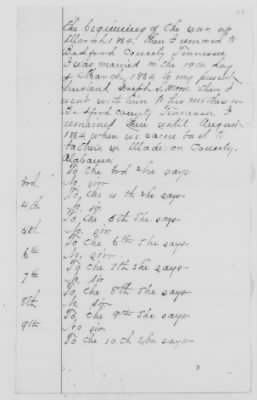 the beginning of the war up
March 1864. Then I removed to
Bedford County Tennessee
I was married on the 19th day
of March, 1864 to my present
husband Joseph Then I
went with him to his mothers in
Bedford County Tennessee I
remained there until August
1864 when we came back to
fathers in Madison County,
Alabama
To the 3rd she says
3rd No, sir
To, the 4th she says
4th No, sir
To the 5th she says
5th No, sir.
To the 6th she says
6th No, sir
To the 7th she says
7th No, sir
To the 8th she says
8th No, sir
To, the 9th she says
9th No sir
To the 10th she says